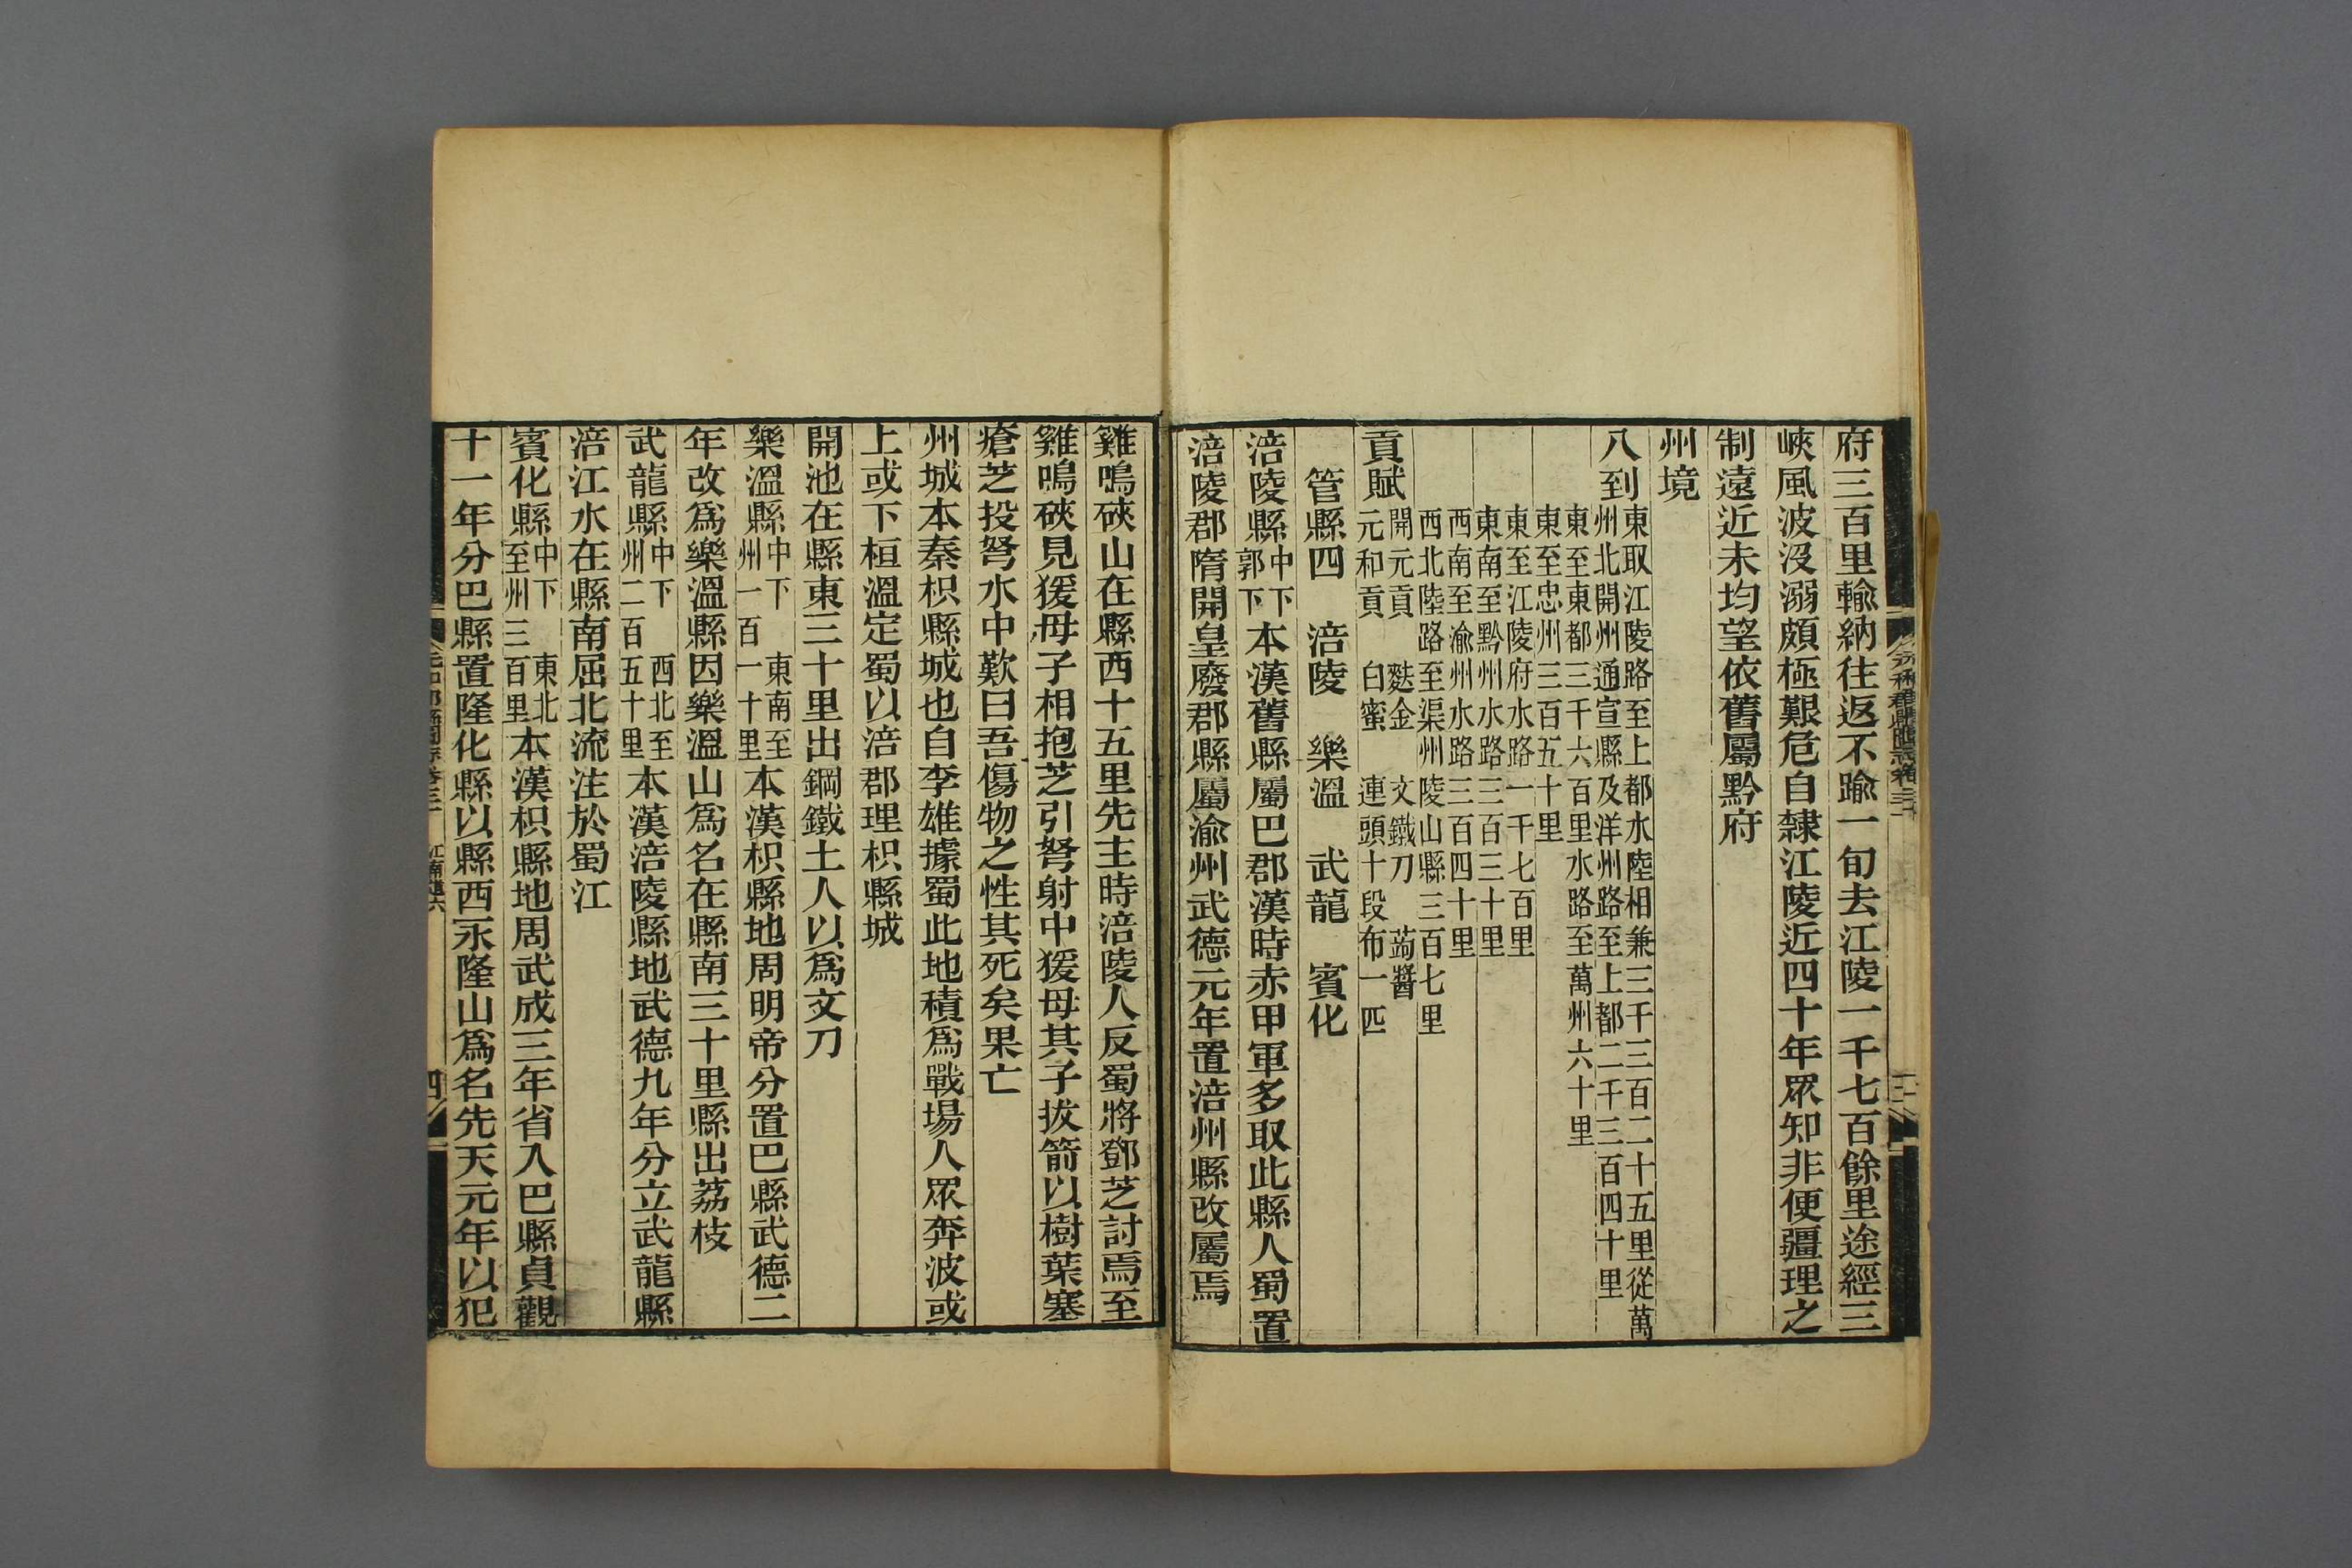 府三百里輸納往返不踰一旬去江陵一千七百餘里途經三
峽風波沒溺頗極艱危自隸江陵近四十年眾知非便疆理之
制遠近未均望依舊屬黔府
州境
八到東取江陵路至上都水陸相兼三千三百二十五里從萬
州北開州通宣縣及洋州路至上都二千三百四十里
東至東都三千六百里水路至萬州六十里
東至忠州三百五十里
東至江陵府水路一千七百里
東南至黔州水路三百三十里
西南至渝州水路三百四十里
西北陸路至渠州陵山縣三百七里
貢賦開元貢 麩金 文鐵刀 蒟醬
元和貢 白蜜 連頭十段布一匹
管縣四 涪陵 樂溫 武龍 賓化
涪陵縣中下郭下本漢舊縣屬巴郡漢時赤甲軍多取此縣人蜀置
涪陵郡隋開皇廢郡縣屬渝州武德元年置涪州縣改屬焉
雞鳴硤山在縣西十五里先主時涪陵人反蜀將鄧芝討焉至
雞鳴硤見猨母子相抱芝引弩射中猨母其子拔箭以樹葉塞
瘡芝投弩水中歎曰吾傷物之性其死矣果亡
州城本秦枳縣城也自李雄據蜀此地積為戰場人眾奔波或
上或下桓溫定蜀以涪郡理枳縣城
開池在縣東三十里出鋼鐵土人以為文刀
樂溫縣中下 東南至州一百一十里本漢枳縣地周明帝分置巴縣武德二
年改為樂溫縣因樂溫山為名在縣南三十里縣出荔枝
武龍縣中下 西北至州二百五十里本漢涪陵縣地武德九年分立武龍縣
涪江水在縣南屈北流注於蜀江
賓化縣中下 東北至州三百里本漢枳縣地周武成三年省入巴縣貞觀
十一年分巴縣置隆化縣以縣西永隆山為名先天元年以犯
四